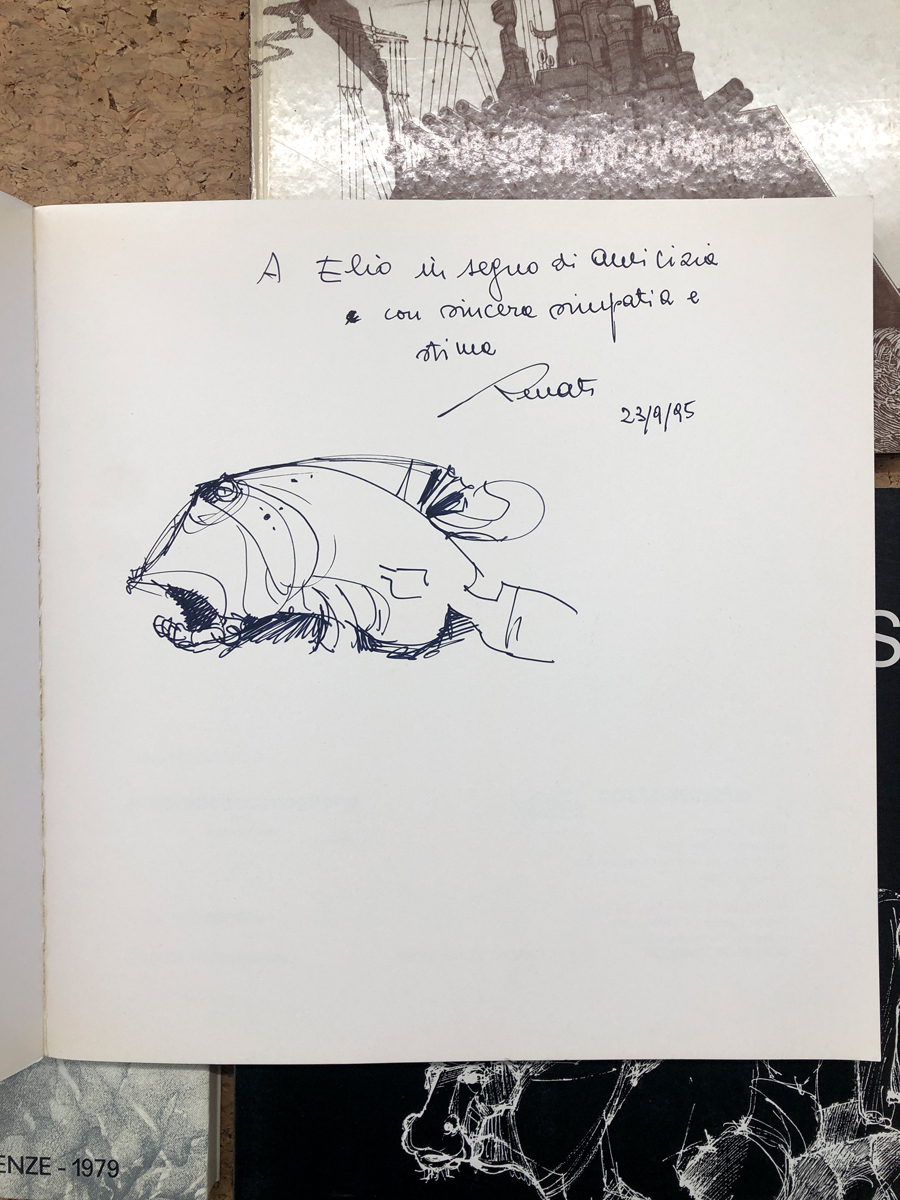 A Elio in segno di amicizia
e con sincera simpatia e
stima
Renato
23/9/95
S
ENZE - 1979